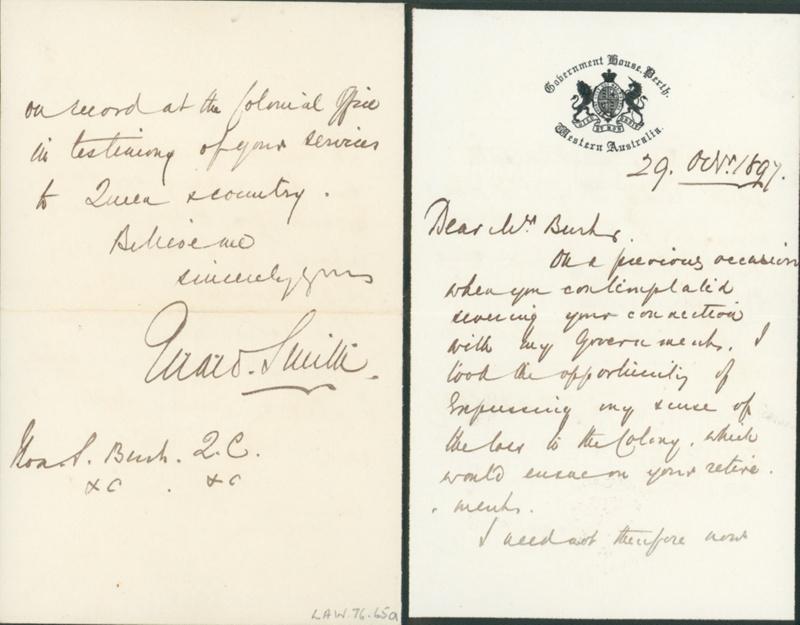 Government House, Perth.
Western Australia.
29. Octr. 1897.
Dear Mr. Burt,
On a previous occasion
when you contemplated
severing your connection
with my Government, I
took the opportunity of
expressing my sense of
the loss to the Colony, which
would ensue on your retire
ment.
I need not therefore now
on record at the Colonial Office
in testimony of your services
to Queen & country.
Believe me
sincerely yours
Gerard Smith.
Hon. S. Burt. Q.C.
&c . &c
LAW.76.65a